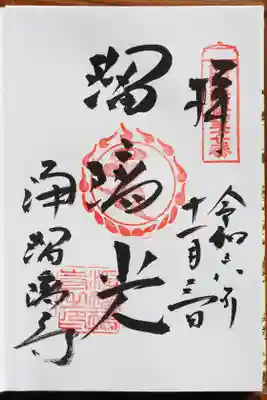 拝
令和六年
十一月三日
瑠璃光
浄瑠璃寺